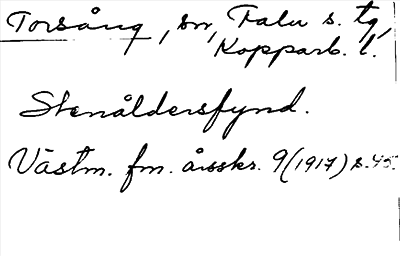 Torsång, sn, Falu s. tg,
Kopparb. l.
Stenåldersfynd.
Västm. fm. årsskr. 9(1917) s. 45.